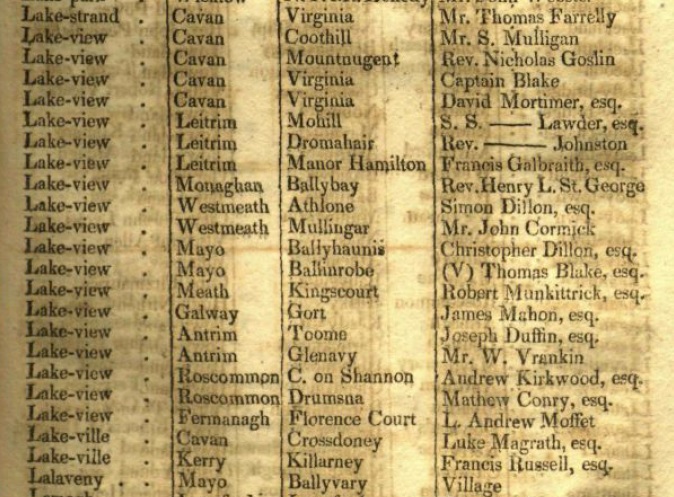 Lake-strand . Cavan Virginia Mr. Thomas Farrelly
Lake-view . Cavan Coothill Mr. S. Mulligan
Lake-view . Cavan Mountnugent Rev. Nicholas Goslin
Lake-view . Cavan Virginia Captain Blake
Lake-view . Cavan Virginia David Mortimer, esq.
Lake-view . Leitrim Mohill S. S. —— Lawder, esq.
Lake-view . Leitrim Dromahair Rev. —— Johnston
Lake-view . Leitrim Manor Hamilton Francis Galbraith, esq.
Lake-view . Monaghan Ballybay Rev. Henry L. St. George
Lake-view . Westmeath Athlone Simon Dillon, esq.
Lake-view . Westmeath Mullingar Mr. John Cormick
Lake-view . Mayo Ballyhaunis Christopher Dillon, esq.
Lake-view . Mayo Ballinrobe (V) Thomas Blake, esq.
Lake-view . Meath Kingscourt Robert Munkittrick, esq.
Lake-view . Galway Gort James Mahon, esq.
Lake-view . Antrim Toome Joseph Duffin, esq.
Lake-view . Antrim Glenavy Mr. W. Vrankin
Lake-view . Roscommon C. on Shannon Andrew Kirkwood, esq.
Lake-view . Roscommon Drumsna Mathew Conry, esq.
Lake-view . Fermanagh Florence Court L. Andrew Moffet
Lake-ville . Cavan Crossdoney Luke Magrath, esq.
Lake-ville . Kerry Killarney Francis Russell, esq.
Lalaveny . . Mayo Ballyvary Village